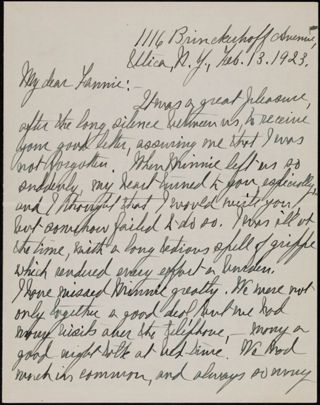 1116 Brinckerhoff Avenue,
Utica, N.Y., Feb. 13. 1923.
My dear Fannie:-
It was a great pleasure,
after the long silence between us, to receive
your good letter, assuring me that I was
not forgotten. When Minnie left us so
suddenly, my heart turned to you especially,
and I thought that I would write you
but somehow failed to do so. I was ill at
the time, with a long tedious spell of grippe
which rendered every effort a burden.
I have missed Minnie greatly. We were not
only together a good deal, but we had
many visits over the telephone, - many a
good night talk at bed-time. We had
much in common, and always so many